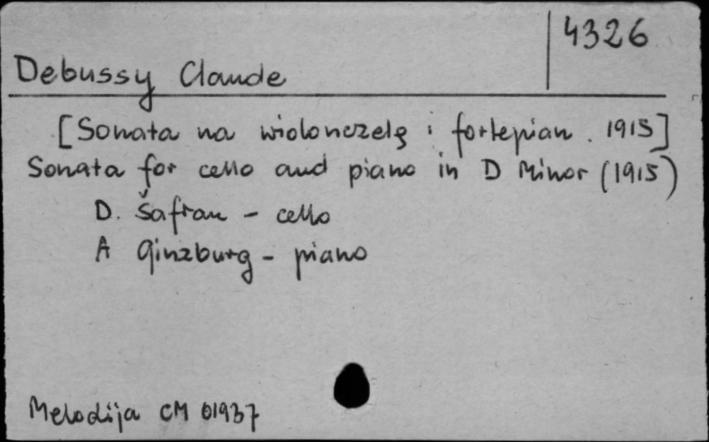 4326
Debussy Claude
[Sonata na wiolonczelę i fortepian. 1915]
Sonata for cello and piano in D Minor (1915)
D. Šafran - cello
A Ginzburg - piano
Melodija CM 01937